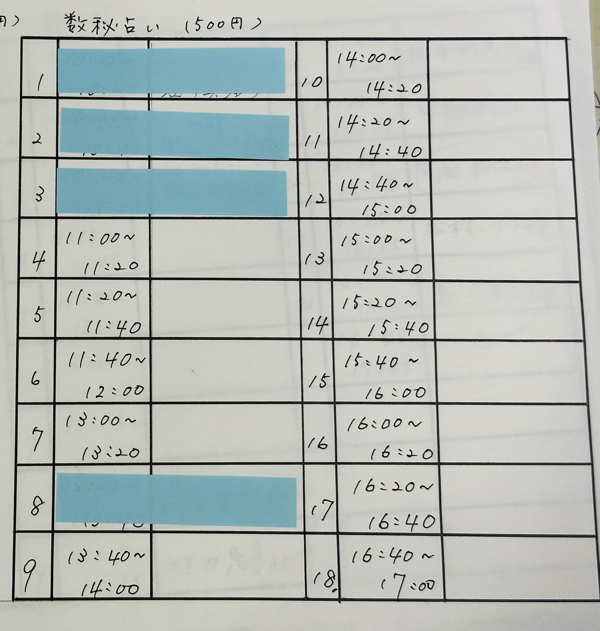 円)
数秘占い (500円)
1
2
3
4 11:00~
11:20
5 11:20~
11:40
6 11:40~
12:00
7 13:00~
13:20
8
9 13:40~
14:00
10 14:00~
14:20
11 14:20~
14:40
12 14:40~
15:00
13 15:00~
15:20
14 15:20~
15:40
15 15:40~
16:00
16 16:00~
16:20
17 16:20~
16:40
18. 16:40~
17:00